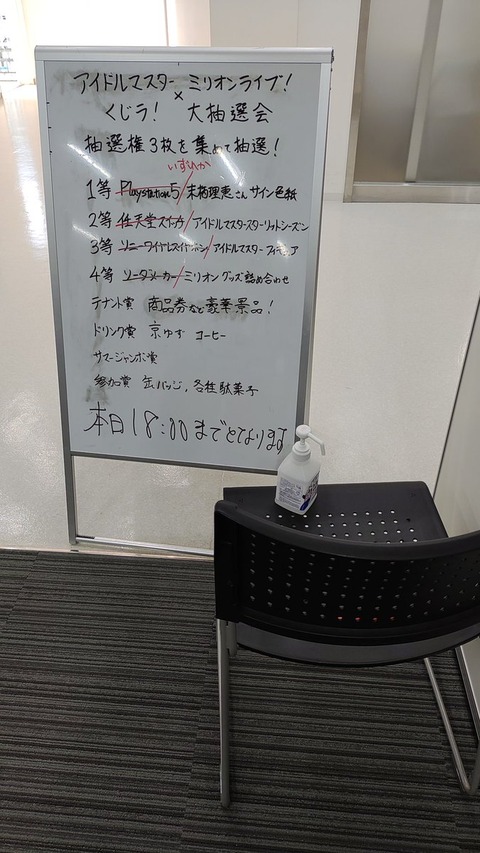 アイドルマスター ミリオンライブ!
×
くじラ! 大抽選会
抽選権3枚を集めて抽選!
いずれか
1等 Playstation5/末柄里恵さんサイン色紙
2等 任天堂スイッチ/アイドルマスタースターリットシーズン
3等 ソニーワイヤレスイヤホン/アイドルマスターフィギュア
4等 ソーダメーカー/ミリオングッズ詰め合わせ
テナント賞 商品券など豪華景品!
ドリンク賞 京ゆず コーヒー
サマージャンボ賞
参加賞 缶バッジ,各種駄菓子
本日18:00までとなります